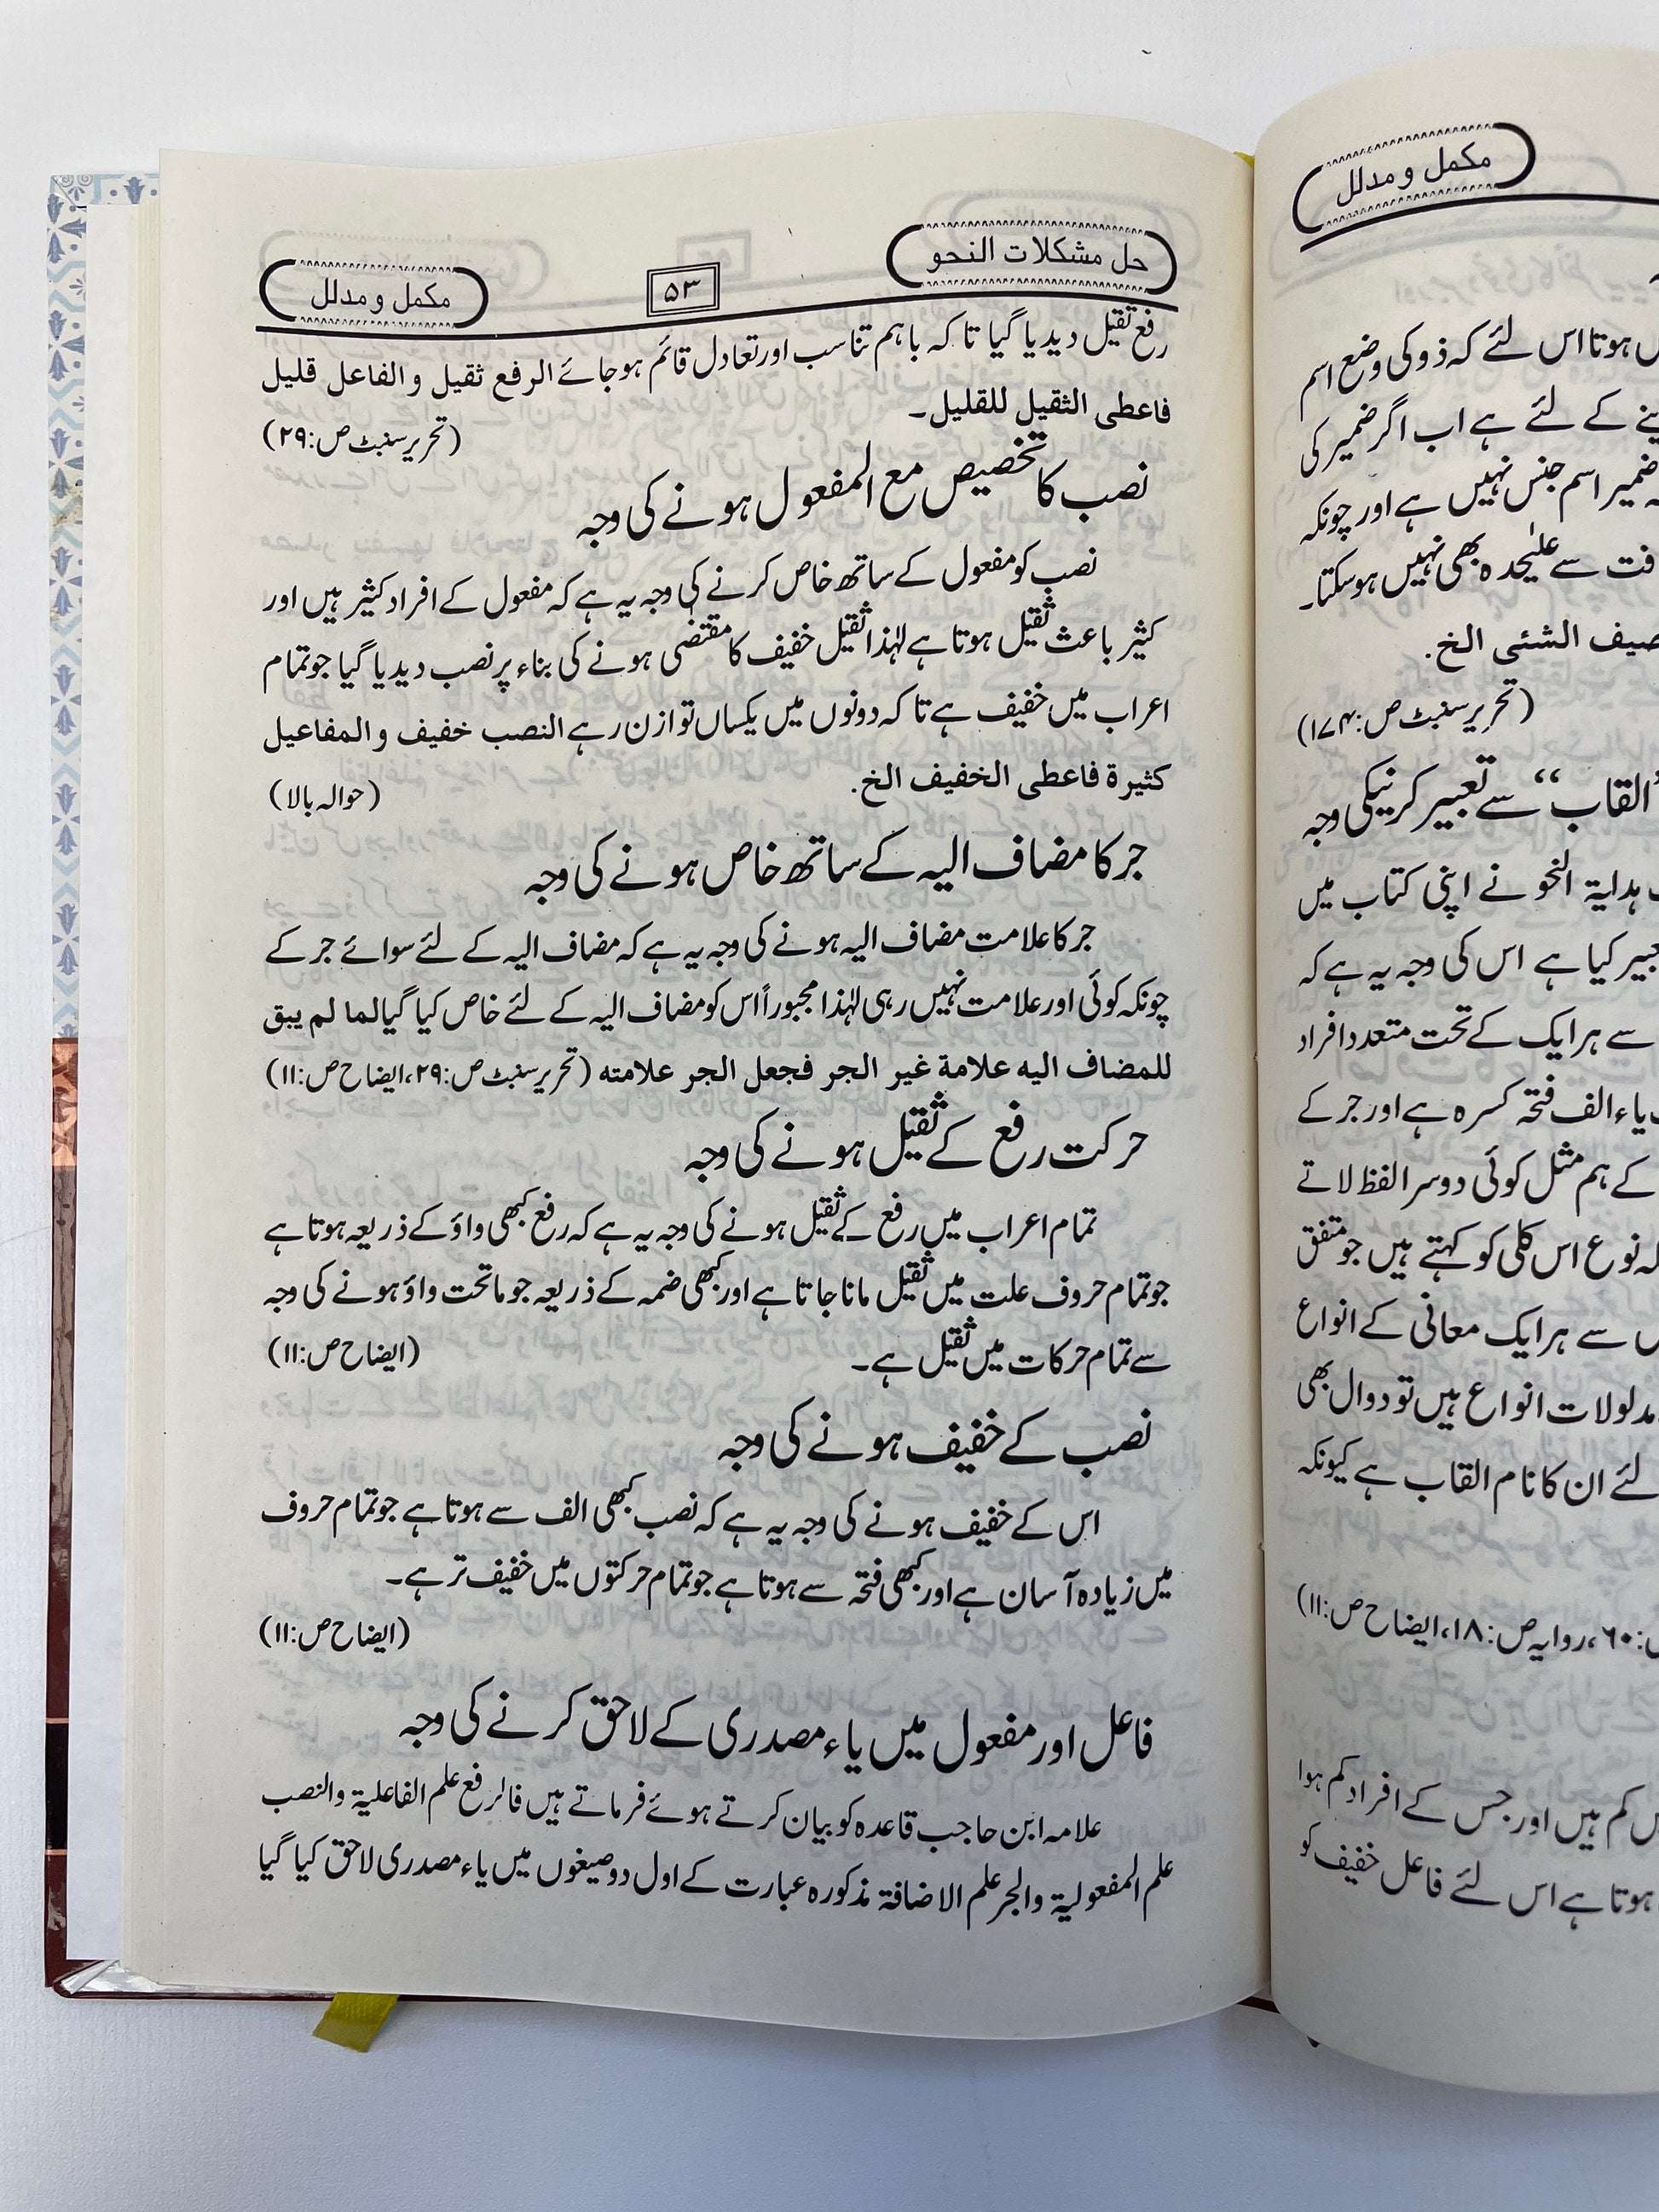 حل مشکلات النحو
۵۳
مکمل و مدلل
رفع ثقیل دیدیا گیا تا کہ باہم تناسب اور تعادل قائم ہو جائے الرفع ثقیل والفاعل قلیل
فاعطی الثقیل للقلیل۔
(تحریر سنبٹ ص:۲۹)
نصب کا تخصیص مع المفعول ہونے کی وجہ
نصب کو مفعول کے ساتھ خاص کرنے کی وجہ یہ ہے کہ مفعول کے افراد کثیر ہیں اور
کثیر باعث ثقیل ہوتا ہے لہٰذا ثقیل خفیف کا مقتضی ہونے کی بناء پر نصب دیدیا گیا جو تمام
اعراب میں خفیف ہے تا کہ دونوں میں یکساں توازن رہے النصب خفیف والمفاعیل
کثیرة فاعطی الخفیف الخ.
(حوالہ بالا)
جر کا مضاف الیہ کے ساتھ خاص ہونے کی وجہ
جر کا علامت مضاف الیہ ہونے کی وجہ یہ ہے کہ مضاف الیہ کے لئے سوائے جر کے
چونکہ کوئی اور علامت نہیں رہی لہٰذا مجبوراً اس کو مضاف الیہ کے لئے خاص کیا گیا لما لم یبق
للمضاف الیه علامة غیر الجر فجعل الجر علامته (تحریر سنبٹ ص:۲۹،ایضاح ص:۱۱)
حرکت رفع کے ثقیل ہونے کی وجہ
تمام اعراب میں رفع کے ثقیل ہونے کی وجہ یہ ہے کہ رفع کبھی واؤ کے ذریعہ ہوتا ہے
جو تمام حروف علت میں ثقیل مانا جاتا ہے اور کبھی ضمہ کے ذریعہ جو ماتحت واؤ ہونے کی وجہ
سے تمام حرکات میں ثقیل ہے۔
(ایضاح ص:۱۱)
نصب کے خفیف ہونے کی وجہ
اس کے خفیف ہونے کی وجہ یہ ہے کہ نصب کبھی الف سے ہوتا ہے جو تمام حروف
میں زیادہ آسان ہے اور کبھی فتحہ سے ہوتا ہے جو تمام حرکتوں میں خفیف تر ہے۔
(ایضاح ص:۱۱)
فاعل اور مفعول میں یاء مصدری کے لاحق کرنے کی وجہ
علامہ ابن حاجب قاعدہ کو بیان کرتے ہوئے فرماتے ہیں فالرفع علم الفاعلیة والنصب
علم المفعولیة والجر علم الاضافة مذکورہ عبارت کے اول دو صیغوں میں یاء مصدری لاحق کیا گیا
مکمل و مدلل
ہوتا اس لئے کہ ذو کی وضع اسم
کے لئے ہے اب اگر ضمیر کی
ضمیر اسم جنس نہیں ہے اور چونکہ
سے علیٰحدہ بھی نہیں ہو سکتا۔
الشئی الخ.
(تحریر سنبٹ ص:۱۷۴)
القاب“ سے تعبیر کرنیکی وجہ
ہدایة النحو نے اپنی کتاب میں
کیا ہے اس کی وجہ یہ ہے کہ
سے ہر ایک کے تحت متعدد افراد
یاء الف فتحہ کسرہ ہے اور جر کے
کے ہم مثل کوئی دوسرا لفظ لاتے
نوع اس کلی کو کہتے ہیں جو متفق
سے ہر ایک معانی کے انواع
مدلولات انواع ہیں تو دوال بھی
لئے ان کا نام القاب ہے کیونکہ
:۶۰،روایہ ص:۱۸،ایضاح ص:۱۱)
کم ہیں اور جس کے افراد کم ہوا
ہوتا ہے اس لئے فاعل خفیف کو